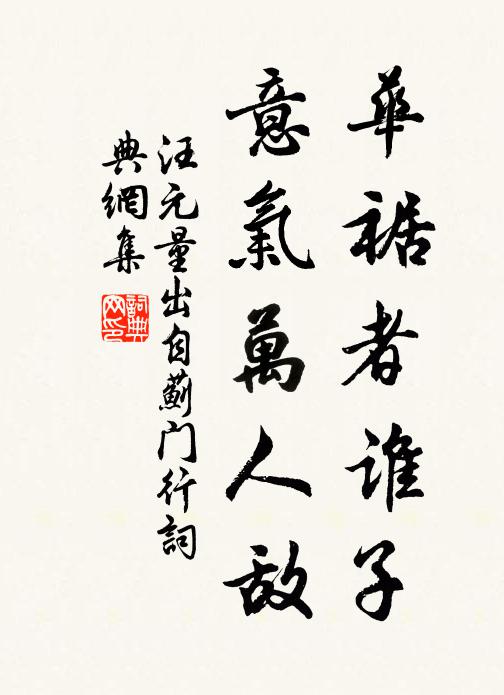 華裾者誰子
意氣萬人敌
汪元量出自薊门行詞
典網集
詞典网印